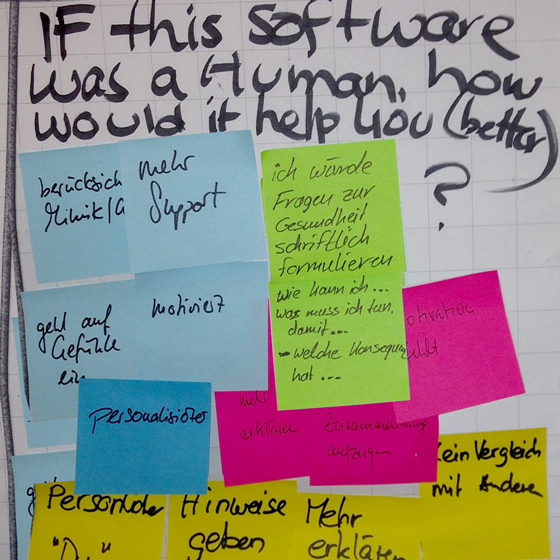 IF this software
was a Human, how
would it help you (better)
?
berücksich
Mimik/G
mehr
Support
ich würde
Fragen zur
Gesundheit
schriftlich
formulieren
wie kann ich...
was muss ich tun,
damit...
- welche Konsequenz
hat ...
geht auf
Gefühle
ein
motiviert
otivation
ehlt
personalisierter
mehr
erklären
Zusammenhänge
aufzeigen
kein Vergleich
mit Anderen
Persönliche
"Du"
Hinweise
geben
Mehr
erklären